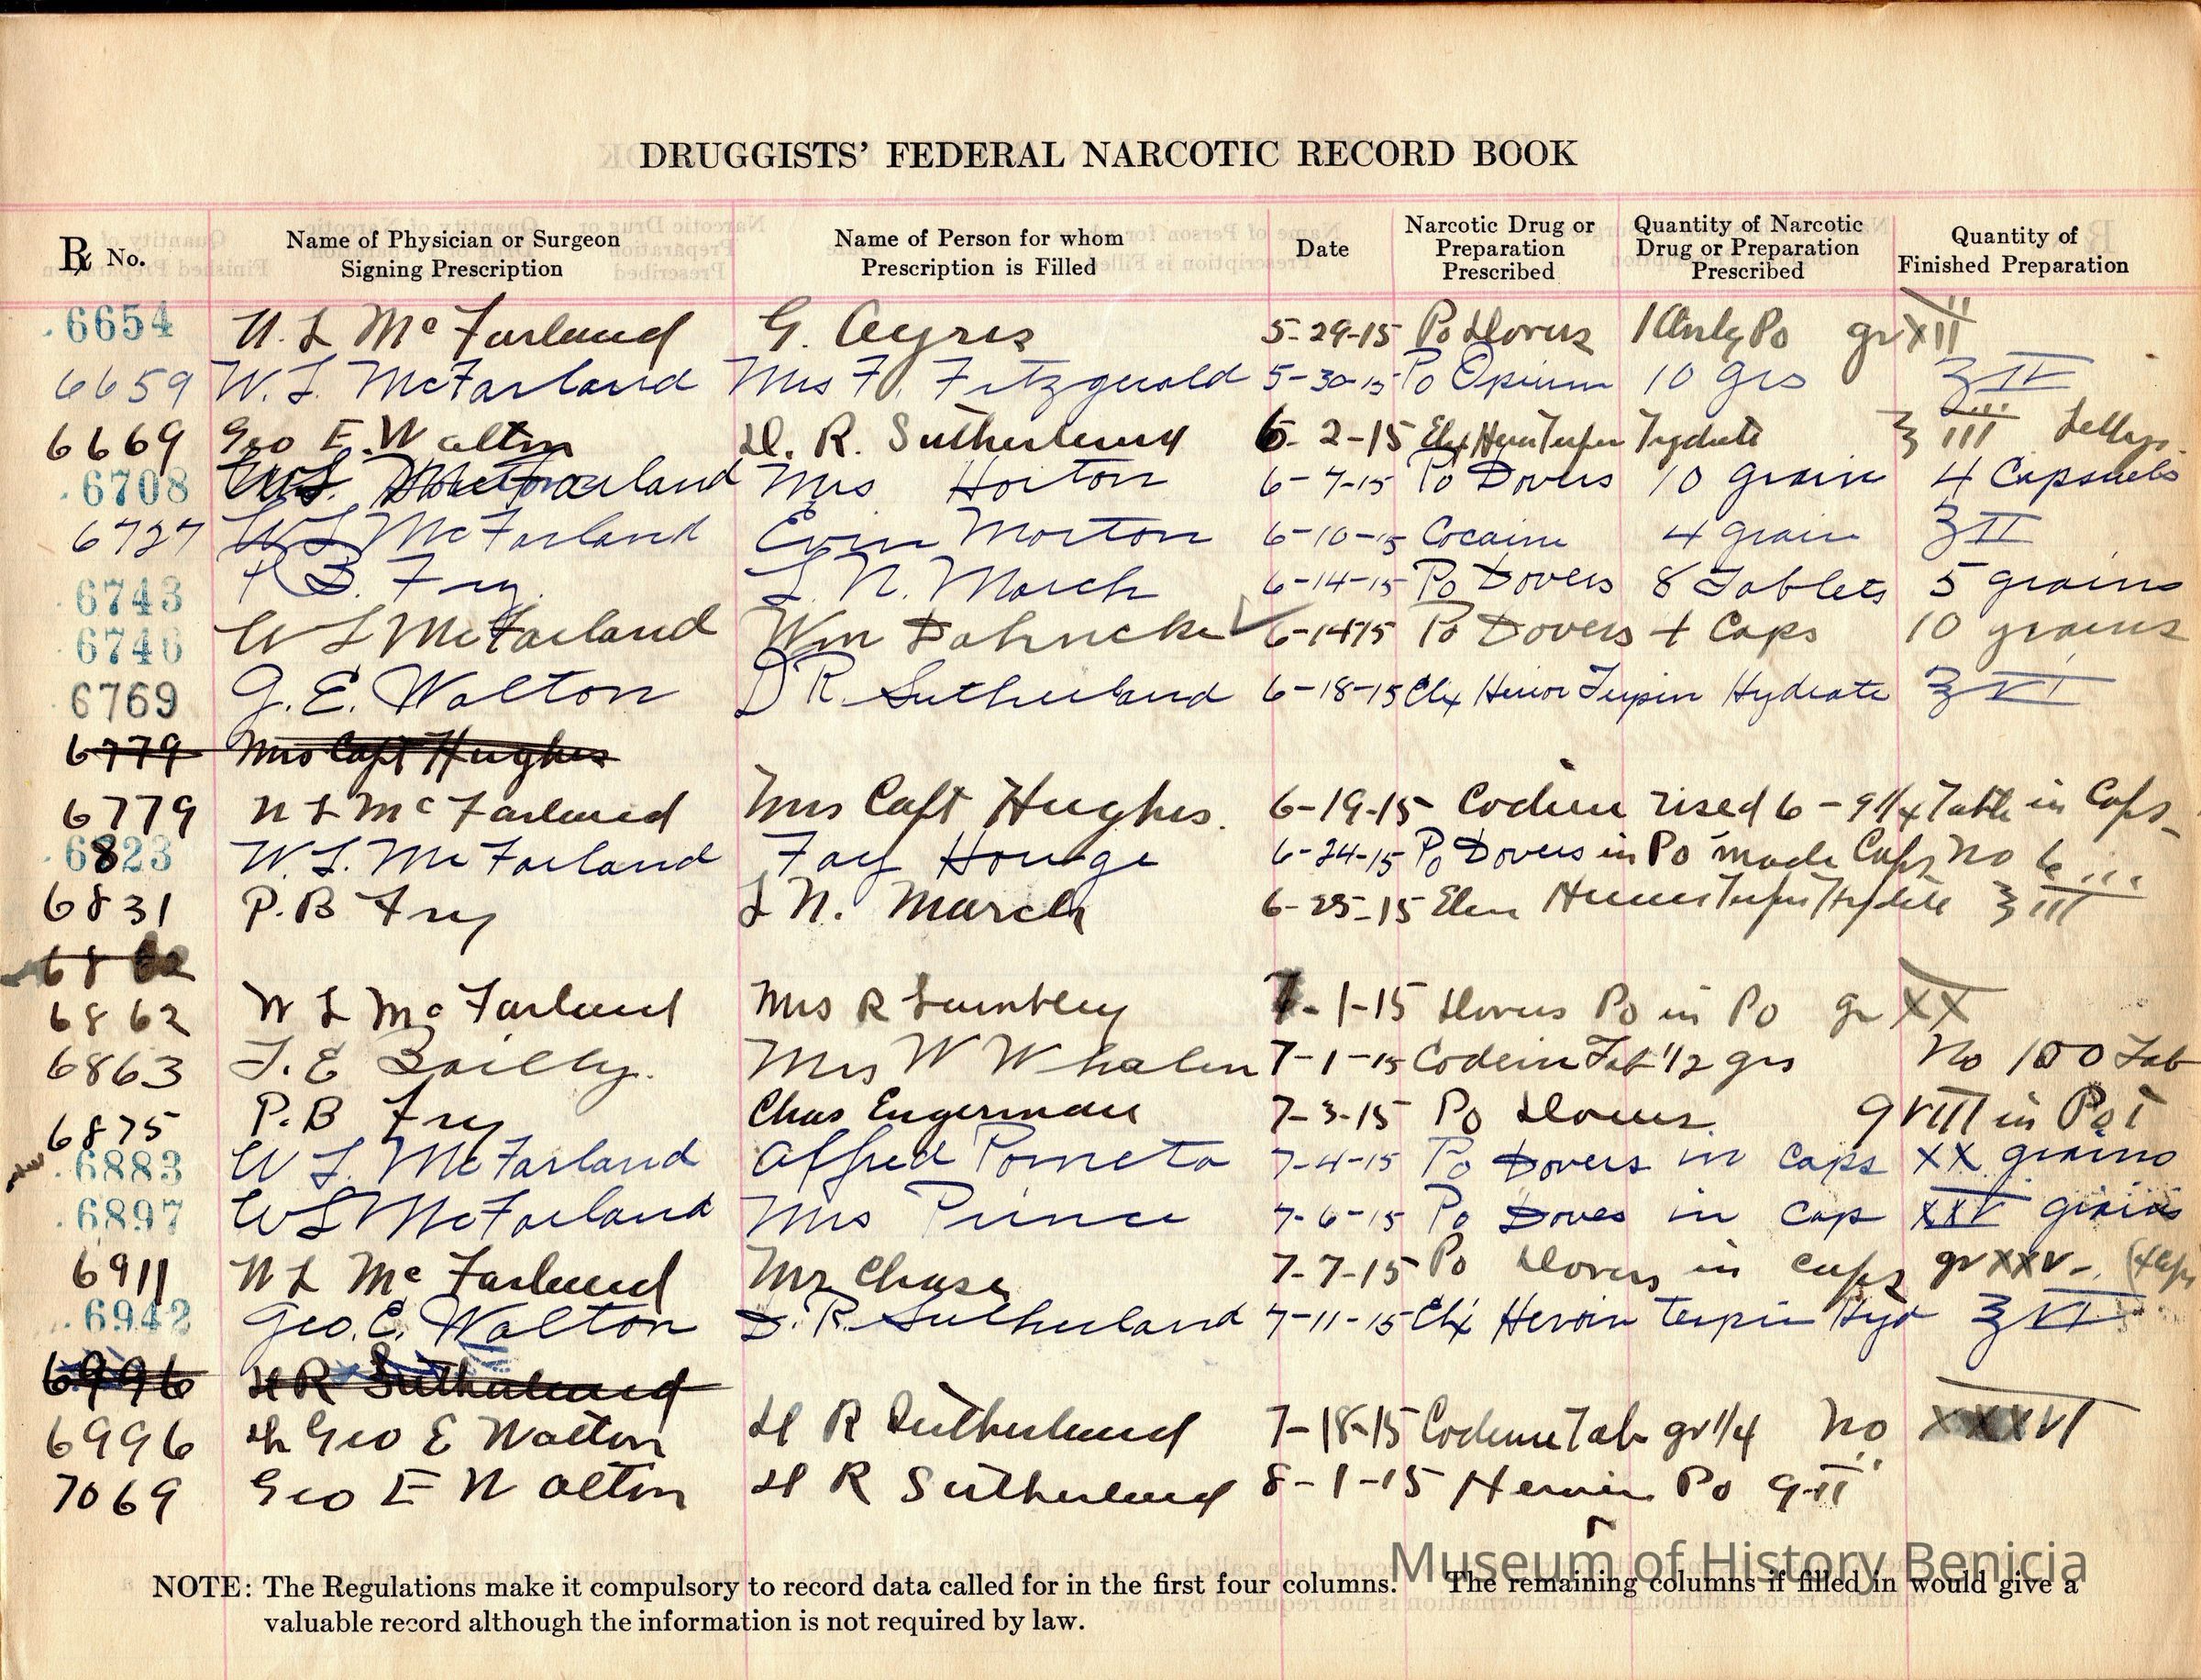 DRUGGISTS' FEDERAL NARCOTIC RECORD BOOK
Rx No. Name of Physician or Surgeon Signing Prescription Name of Person for whom Prescription is Filled Date Narcotic Drug or Preparation Prescribed Quantity of Narcotic Drug or Preparation Prescribed Quantity of Finished Preparation
6654 W. L Mc Farland G. Ayres 5-29-15 Po Dovers Po gr XII
6659 W. L. McFarland Mrs F. Fitzgerald 5-30-15 Po Opium 10 grs ℥ IV
6669 Geo E. Walton D. R. Sutherland 6-2-15 Elix Heroin Terpin Hydrate ℥ III
6708 W.L. McFarland Mrs Horton 6-7-15 Po Dovers 10 grain 4 Capsuels
6727 W L McFarland Morton 6-10-15 Cocaine 4 grain ℥ II
6743 P B. Fry. L. N. March 6-14-15 Po Dovers 8 Tablets 5 grains
6746 W L McFarland Wm Dahncke 6-14 15 Po Dovers 4 Caps 10 grains
6769 G. E. Walton D R. Sutherland 6-18-15 Elix Heroin Terpin Hydrate ℥ VI
6779 Mrs Capt Hughes
6779 W L Mc Farland Mrs Capt Hughes. 6-19-15 6 - in Caps
6823 W. L. McFarland Fay 6-24-15 Po Dovers in Po made Caps No 6
6831 P. B Fry L N. March 6-25-15 Terpin Hydrate ℥ III
6862
6862 W L Mc Farland Mrs R 7-1-15 Dovers Po in Po gr XX
6863 Mrs W Whalen 7-1-15 Codein Tab 1/2 grs No 100 Tab
6875 P. B Fry Chas Engerman 7-3-15 Po Dovers. in Po
6883 W L. McFarland Alfred Pometa 7-4-15 Po Dovers in caps XX grains
6897 W L McFarland Mrs Prince 7-6-15 Po Doves in cap XXV grains
6911 W L Mc Farland Mr Chase 7-7-15 Po Dovers in caps gr XXV
6942 Geo. E. Walton D. R. Sutherland 7-11-15 Elix Heroin terpin Hyd ℥ VI
6996 D R Sutherland
6996 Geo E Walton D R Sutherland 7-18-15 Codeine Tab gr 1/4 No XXXVI
7069 Geo E Walton D R Sutherland 8-1-15 Heroin Po
Museum of History Benicia
NOTE: The Regulations make it compulsory to record data called for in the first four columns. The remaining columns if filled in would give a
valuable record although the information is not required by law.